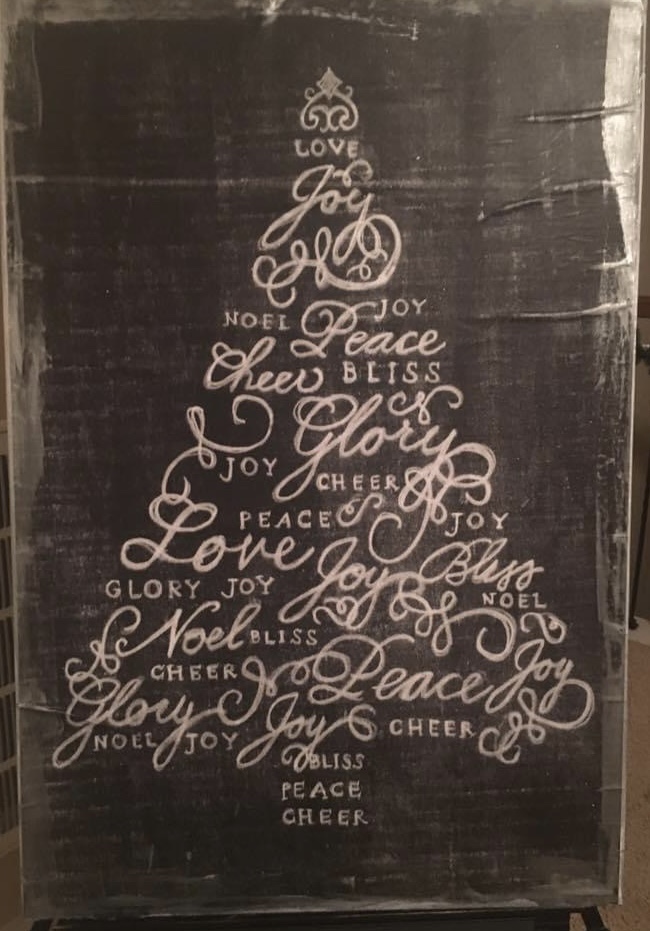 LOVE
Joy
NOEL Peace JOY
Cheer BLISS
Glory
JOY CHEER
PEACE JOY
Love Joy Bliss
GLORY JOY NOEL
Noel BLISS
CHEER Peace Joy
Glory Joy CHEER
NOEL JOY
BLISS
PEACE
CHEER